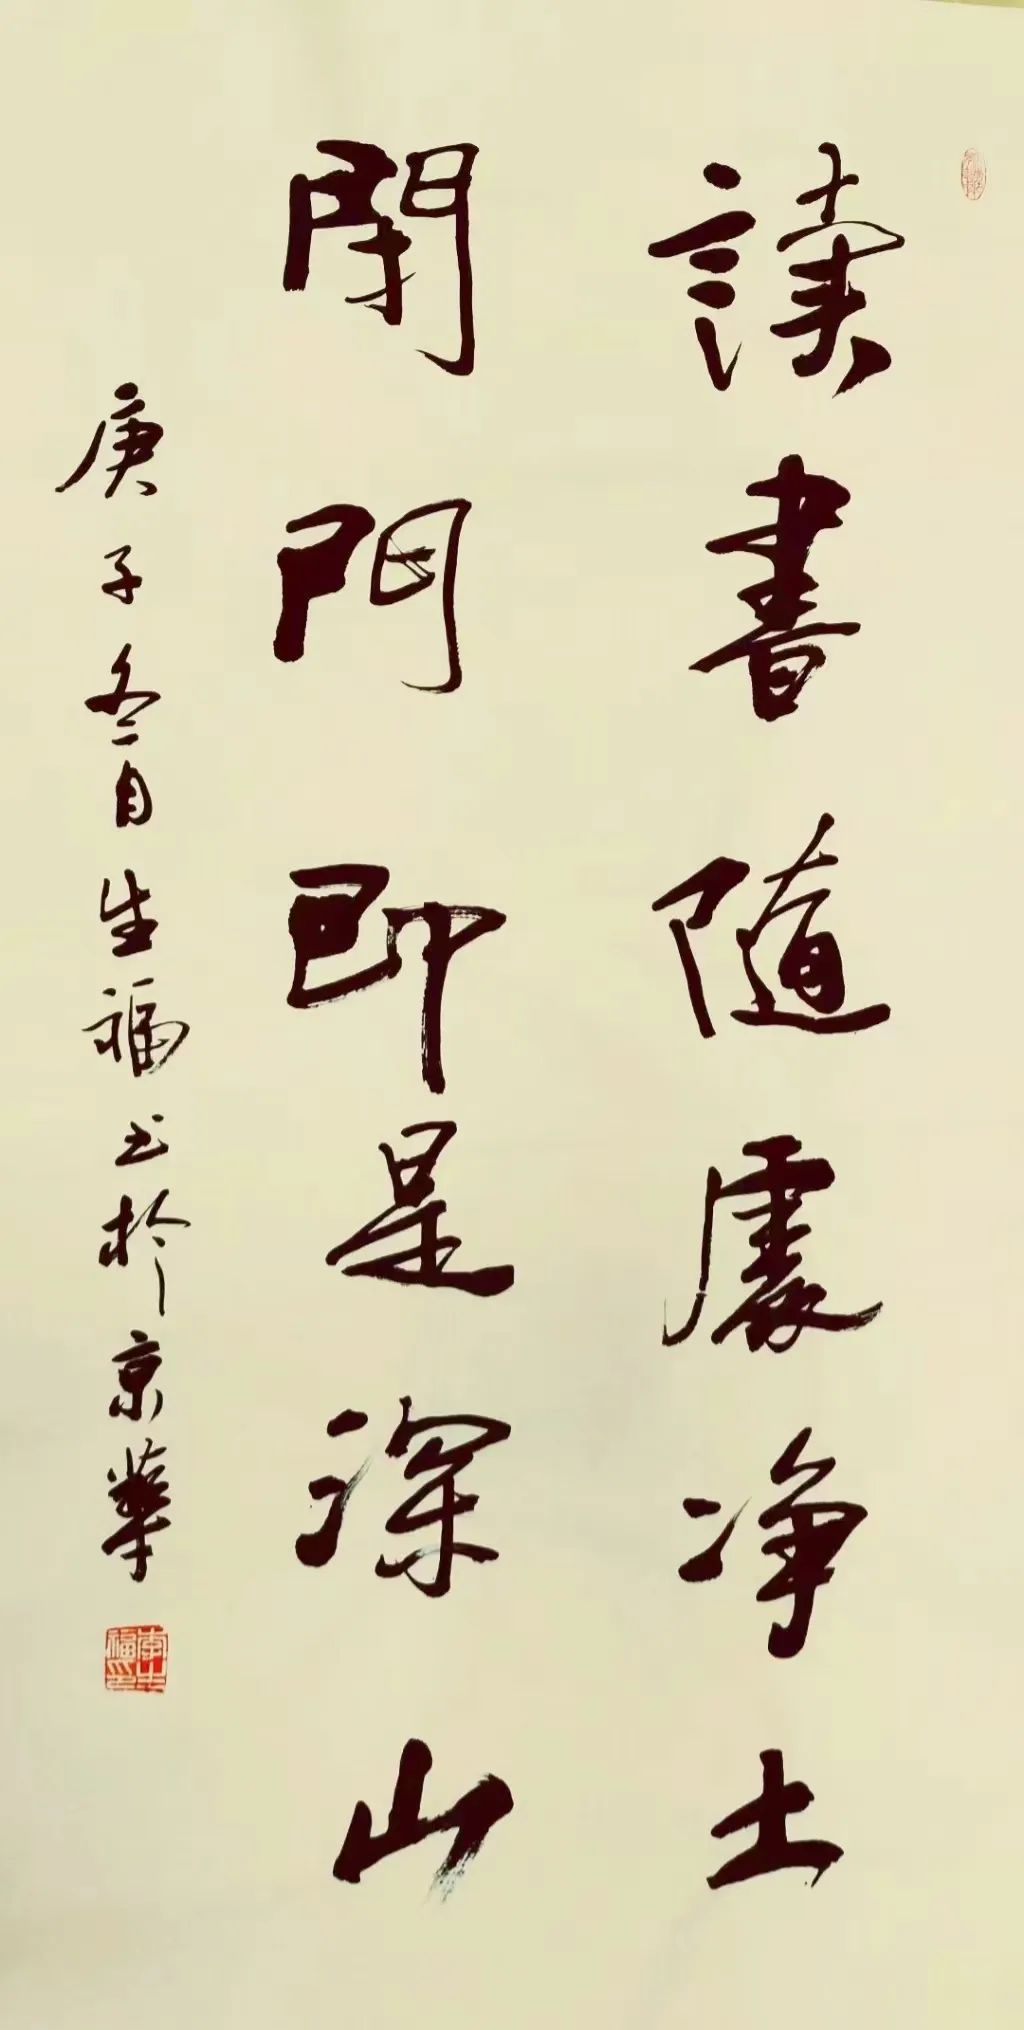 讀書隨處净土
閉門即是深山
庚子冬月生福书於京華